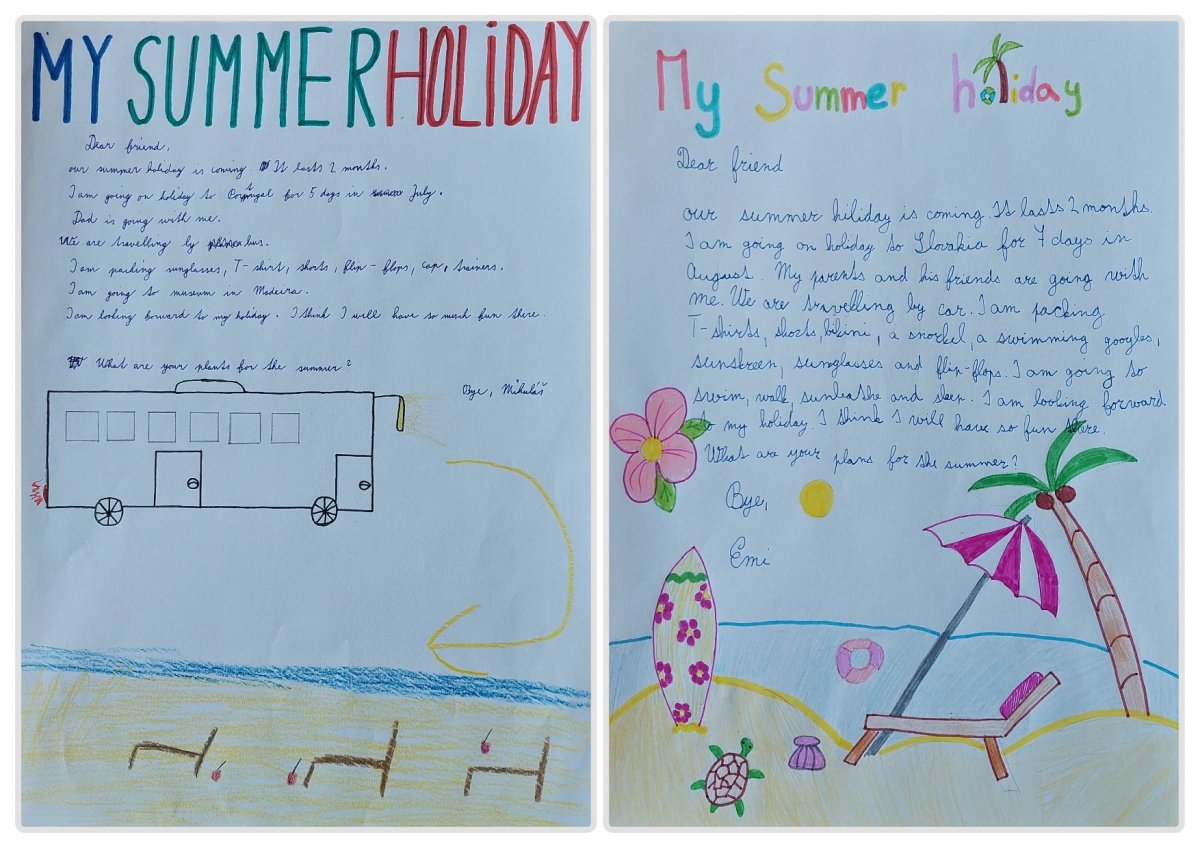 MY SUMMER HOLIDAY
Dear friend,
our summer holiday is coming. It lasts 2 months.
I am going on holiday to Portugal for 5 days in July.
Dad is going with me.
We are travelling by bus.
I am packing sunglasses, T-shirt, shorts, flip-flops, cap, trainers.
I am going to museum in Madeira.
I am looking forward to my holiday. I think I well have so much fun there.
What are your plants for the summer?
Bye, Mikuláš
My Summer holiday
Dear friend
our summer hiliday is coming. It lasts 2 months.
I am going on holiday to Slovakia for 7 days in
August. My parents and his friends are going with
me. We are travelling by car. I am packing
T-shirts, shorts, bikini, a snorkel, a swimming googles,
sunskreen, sunglasses and flip-flops. I am going to
swim, walk, sunbathe and sleep. I am looking forward
to my holiday. I think I will have so fun there.
What are your plans for the summer?
Bye,
Emi